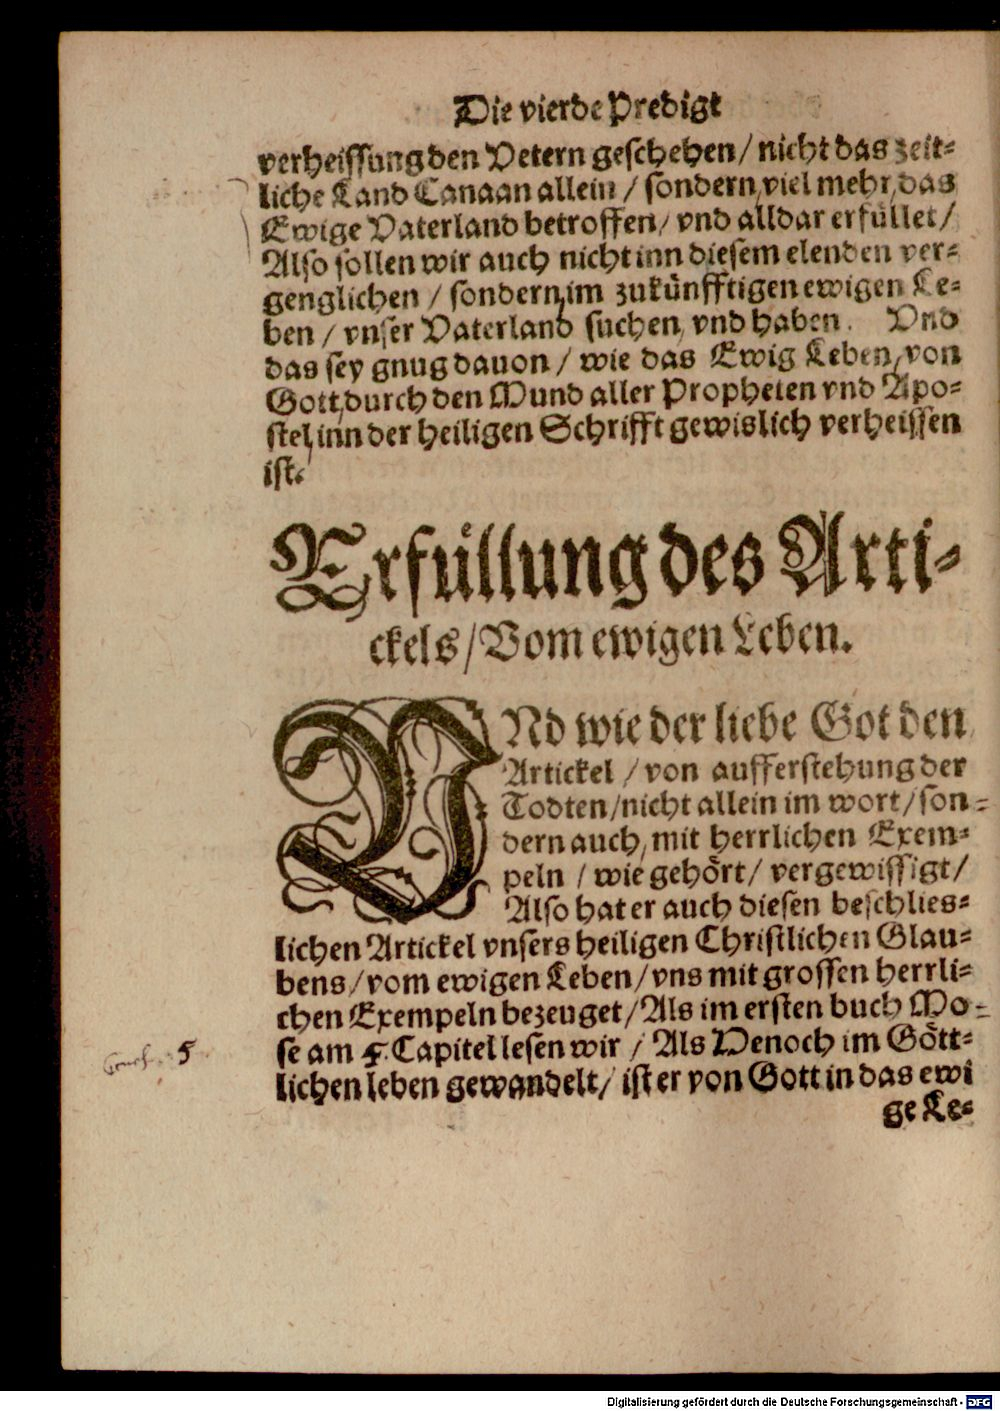 Die vierde Predigt
verheissung den Vetern geschehen / nicht das zeit-
liche Land Canaan allein / sondern, viel mehr, das
Ewige Vaterland betroffen / vnd alldar erfüllet /
Also sollen wir auch nicht inn diesem elenden ver-
genglichen / sondern, im zukünfftigen ewigen Le-
ben / vnser Vaterland suchen, vnd haben. Vnd
das sey gnug dauon / wie das Ewig Leben, von
Gott, durch den Mund aller Propheten vnd Apo-
stel, inn der heiligen Schrifft gewislich verheissen
ist.
Erfüllung des Arti-
ckels / Vom ewigen Leben.
VNd wie der liebe Got den
Artickel / von aufferstehung der
Todten / nicht allein im wort / son-
dern auch, mit herrlichen Exem-
peln / wie gehört / vergewissigt /
Also hat er auch diesen beschlies-
lichen Artickel vnsers heiligen Christlichen Glau-
bens / vom ewigen Leben / vns mit grossen herrli-
chen Exempeln bezeuget / Als im ersten buch Mo-
se am 5. Capitel lesen wir / Als Henoch im Gött-
lichen leben gewandelt / ist er von Gott in das ewi
5
ge Le-
Digitalisierung gefördert durch die Deutsche Forschungsgemeinschaft - DFG